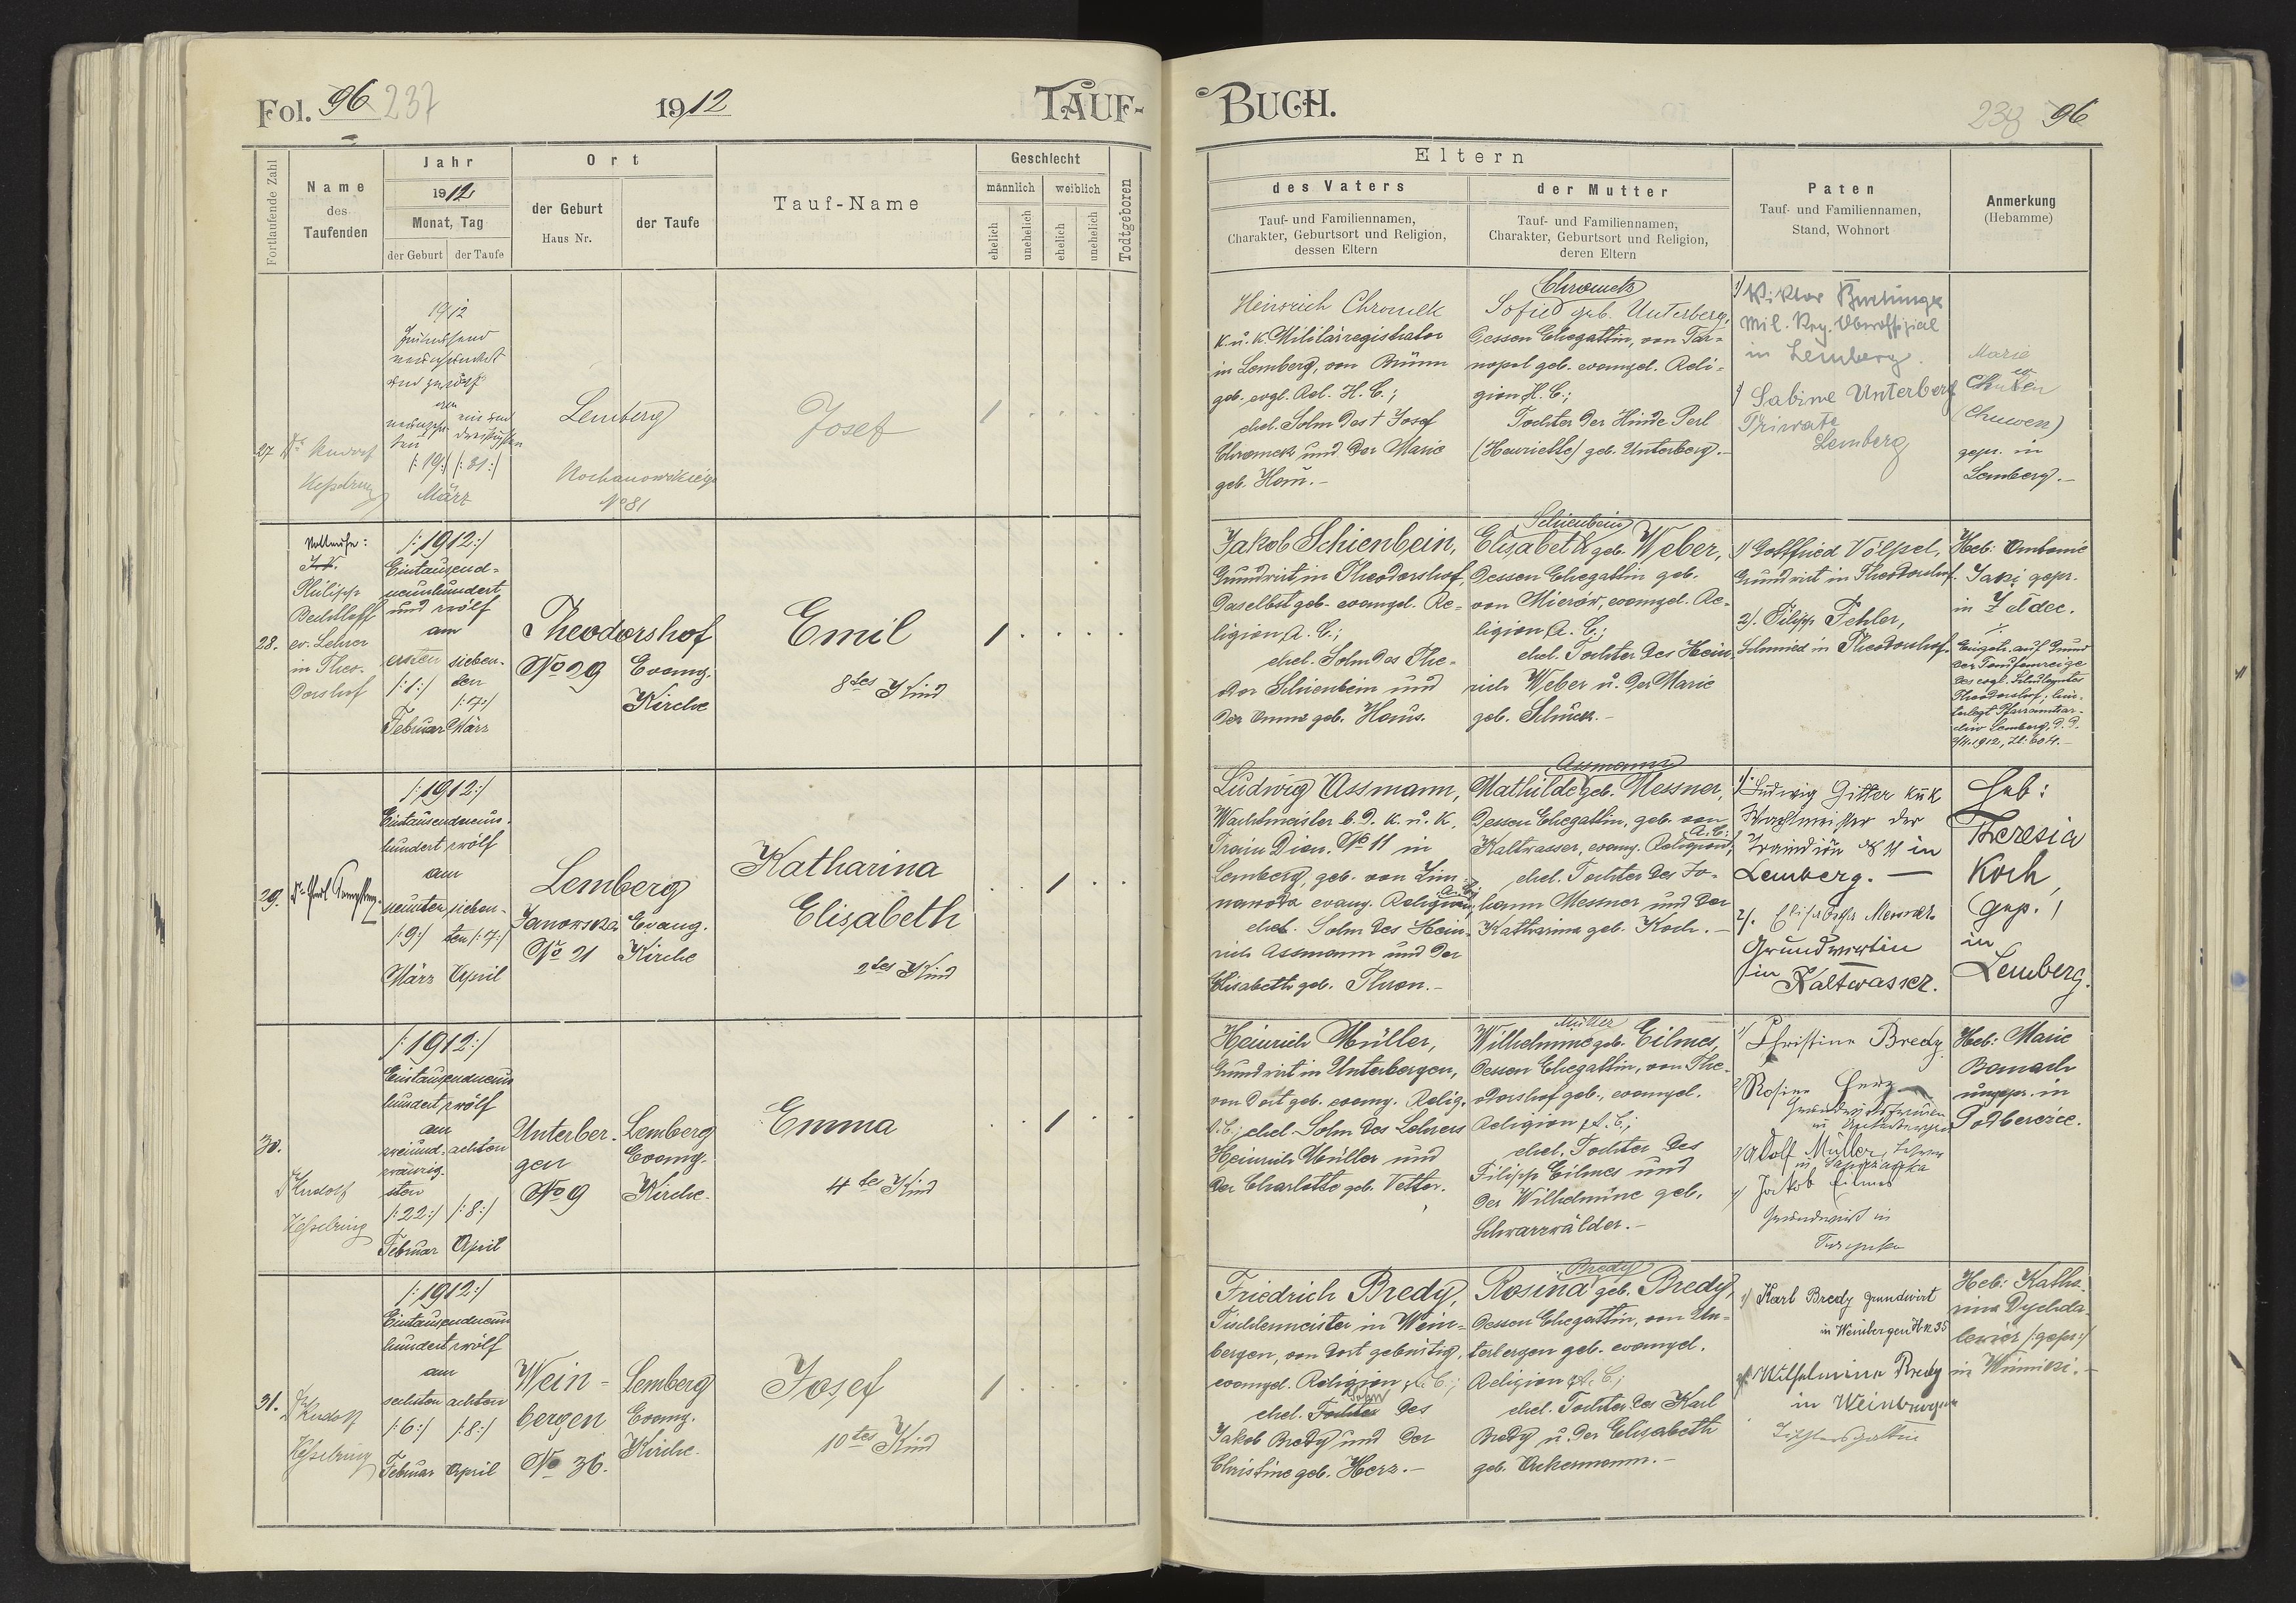 Fol. 96 237
1912
TAUF-
Fortlaufende Zahl
Name
des
Taufenden
Jahr
1912
Monat, Tag
der Geburt
der Taufe
Ort
der Geburt
Haus Nr.
der Taufe
Tauf-Name
Geschlecht
männlich
weiblich
ehelich
unehelich
ehelich
unehelich
Todtgeboren
27
1912
/:19:/ /:31:/
März
Lemberg
No 81
Josef
28.
Philipp
ev. Lehrer
in Theo-
dorshof
/:1912:/
Eintausend-
neunhundert
und zwölf
am
ersten sieben-
/:1:/ ten
/:7:/
Februar März
Theodorshof
No 29 Evang.
Kirche
Emil
8tes Kind
29.
/:1912:/
Eintausendneun-
hundert zwölf
am
neunten sieben-
/:9:/ ten /:7:/
März April
Lemberg
Janowska Evang.
No 21 Kirche
Katharina
Elisabeth
2tes Kind
30.
Dr Rudolf
Kesselring
/:1912:/
Eintausendneun
hundert zwölf
am
zweiund- achten
zwanzig-
sten
/:22:/ /:8:/
Februar April
Unterber- Lemberg
gen Evang.
No 9 Kirche.
Emma
4tes Kind
31.
Dr Rudolf
Kesselring
/:1912:/
Eintausendneun
hundert zwölf
am
sechsten achten
/:6:/ /:8:/
Februar April
Wein- Lemberg
bergen Evang.
No 36. Kirche.
Josef
10tes Kind
BUCH.
238 96
Eltern
des Vaters
Tauf- und Familiennamen,
Charakter, Geburtsort und Religion,
dessen Eltern
der Mutter
Tauf- und Familiennamen,
Charakter, Geburtsort und Religion,
deren Eltern
Paten
Tauf- und Familiennamen,
Stand, Wohnort
Anmerkung
(Hebamme)
Heinrich Chromek
k. u. k. Militärregistrator
in Lemberg, von Brünn
geb., evgl. Rel. H. C.;
ehel. Sohn des † Josef
Chromek und der Marie
geb. Hom.-
Chromek
Sofie geb. Unterberg,
dessen Ehegattin, von Tar-
nopol geb. evangel. Reli-
gion H. C.;
Tochter der Hinde Perl
(Henriette) geb. Unterberg.-
1) Viktor
Mil. Reg. Oberoffizial
in Lemberg.
Sabine Unterberg
Private
Lemberg
Marie
(Chuwen)
gepr. in
Lemberg.-
Jakob Schienbein,
Grundwirt in Theodorshof,
daselbst geb. evangel. Re-
ligion A. C.;
ehel. Sohn des The-
odor Schienbein und
der Anna geb. Haus.
Schienbein
Elisabeth geb. Weber,
dessen Ehegattin geb.
von Mierów, evangel. Re-
ligion A. C.;
ehel. Tochter des Hein-
rich Weber u. der Marie
geb. Schück.-
1) Gottfried Völpel,
Grundwirt in Theodorshof.
2). Filipp Fehler,
Schmied in Theodorshof.
Heb: Antonie
gepr.
in Żeldec.
Eingetr. auf Grund
der Taufanzeige
des evgl. Schulamtes
Theodorshof, hin-
terlegt Pfarramtsar-
chiv Lemberg, d. d.
2/4. 1912, Zl: 604.-
Ludwig Assmann,
Wachtmeister b. d. k. u. k.
Train Divn. No 11 in
Lemberg, geb. von Zim-
nawoda evang. Religion A. C.;
ehel. Sohn des Hein-
rich Assmann und der
Elisabeth geb. Thron.-
Assmann
Mathilde geb. Messner,
dessen Ehegattin, geb. von
Kaltwasser, evang. Religion A. C.;
ehel. Tochter des Jo-
hann Messner und der
Katharina geb. Koch.-
1) Ludwig Gitter kuk
Wachtmeister der
Traindion No 11 in
Lemberg. —
2). Elisabeth Messner
Grundwirtin
in Kaltwasser.
Heb:
Theresia
Koch,
gep.
in
Lemberg.
Heinrich Müller,
Grundwirt in Unterbergen,
von dort geb. evang. Relig.
A. C.; ehel. Sohn des Lehrers
Heinrich Müller und
der Charlotte geb. Vetter.
Müller
Wilhelmine geb. Eilmes,
dessen Ehegattin, von The-
odorshof geb., evangel.
Religion A. C.;
ehel. Tochter des
Filipp Eilmes und
der Wilhelmine geb.
Schwarzwälder.-
1) Christine Bredy
2) Rosine Herz
in Unterbergen
3) Adolf Müller, Lehrer
4) Jakob Eilmes
Grundwirt in
Heb: Marie
Banach
ungepr. in
Podberezce.
Friedrich Bredy,
Tischlermeister in Wein-
bergen, von dort gebürtig,
evangel. Religion A. C.;
ehel. Tochter Sohn des
Jakob Bredy und der
Christine geb. Herz.-
Bredy
Rosina geb. Bredy,
dessen Ehegattin, von Un-
terbergen geb. evangel.
Religion A. C.;
ehel. Tochter des Karl
Bredy u. der Elisabeth
geb. Ackermann.-
1) Karl Bredy Grundwirt
in Weinbergen H. N. 35
2) Wilhelmine Bredy
in Weinbergen
Tischlersgattin
Heb: Katha-
rina Dychda-
lewicz /:gepr:/
in Winniki.-